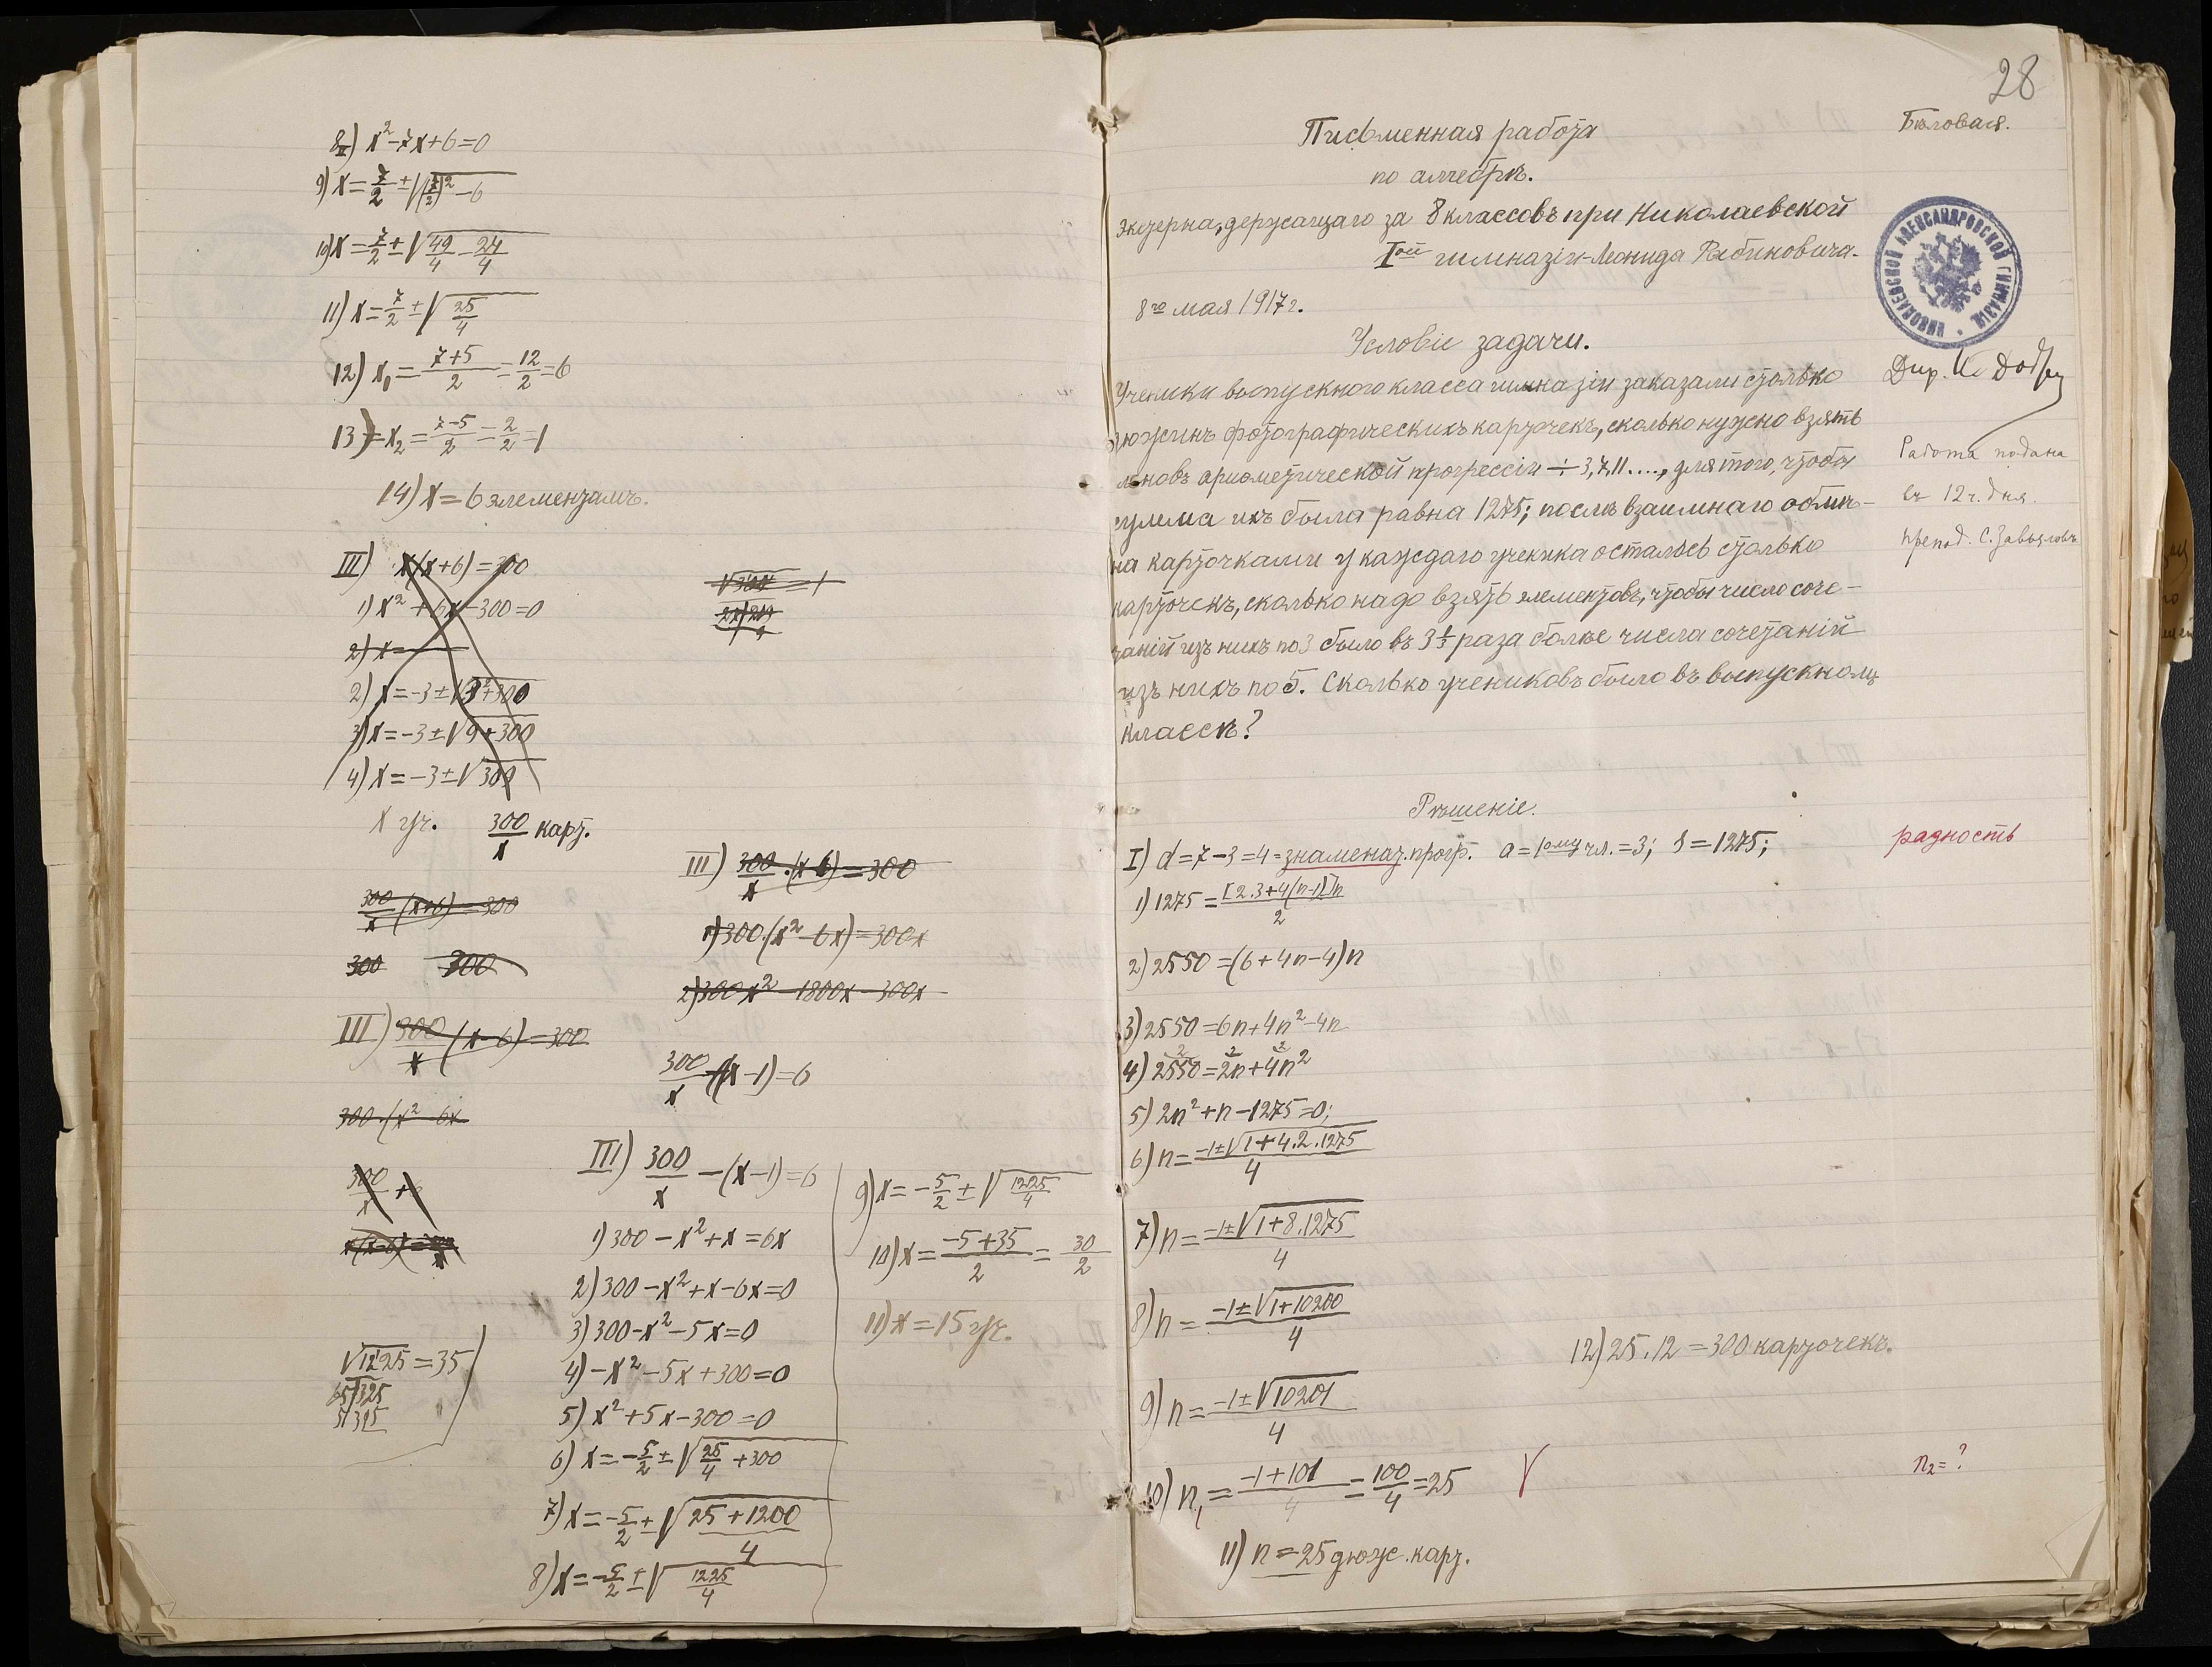 8) x²-7x+6=0
9) x = 7/2 ± √((7/2)² - 6)
10) x = 7/2 ± √(49/4 - 24/4)
11) x = 7/2 ± √(25/4)
12) x₁ = (7+5)/2 = 12/2 = 6
13) x₂ = (7-5)/2 = 2/2 = 1
14) x = 6 элементамъ.
III) x(x+6)=300
1) x²+6x-300=0
2) x=
2) x=-3±√(3²+300)
3) x=-3±√(9+300)
4) x=-3±√309
x уч. 300/x карт.
300/x (x+6)=300
300 300
III) 300/x (x-6)=300
300·(x²-6x
300/x +
√1225=35
65|325
5|325
III) 300/x·(x-6)=300
1) 300·(x²-6x)=300x
2) 300x²-1800x-300x
300/x-(x-1)=6
III) 300/x-(x-1)=6
1) 300-x²+x=6x
2) 300-x²+x-6x=0
3) 300-x²-5x=0
4) -x²-5x+300=0
5) x²+5x-300=0
6) x=-5/2±√(25/4+300)
7) x=-5/2±√((25+1200)/4)
8) x=-5/2±√(1225/4)
9) x=-5/2±√(1225/4)
10) x=(-5+35)/2=30/2
11) x=15 уч.
28
Бѣловая.
Письменная работа
по алгебрѣ.
экстерна, держащаго за 8 классовъ при Николаевской
I-ой гимназіи-Леонида Рабиновича.
8го мая 1917 г.
НИКОЛАЕВСКОЙ АЛЕКСАНДРОВСКОЙ ГИМНАЗІИ
Дир.
Работа подана
въ 12 ч. дня.
препод. С. Завьяловъ
Условіе задачи.
Ученики выпускного класса гимназіи заказали столько
дюжинъ фотографическихъ карточекъ, сколько нужно взять
членовъ ариѳметической прогрессіи ÷3,7,11...., для того, чтобы
сумма ихъ была равна 1275; послѣ взаимнаго обмѣ-
на карточками у каждаго ученика осталось столько
карточекъ, сколько надо взять элементовъ, чтобы число соче-
таній изъ нихъ по 3 было въ 3⅓ раза болѣе числа сочетаній
изъ нихъ по 5. Сколько учениковъ было въ выпускномъ
классѣ?
Рѣшеніе.
I) d=7-3=4=знаменат. прогр. a=1ому чл.=3; S=1275;
разность
1) 1275=[2.3+4(n-1)]n/2
2) 2550=(6+4n-4)n
3) 2550=6n+4n²-4n
4) 2550=2n+4n²
5) 2n²+n-1275=0;
6) n=(-1±√(1+4.2.1275))/4
7) n=(-1±√(1+8.1275))/4
8) n=(-1±√(1+10200))/4
9) n=(-1±√10201)/4
10) n₁=(-1+101)/4=100/4=25 √
n₂=?
11) n=25 дюж. карт.
12) 25.12=300 карточекъ.